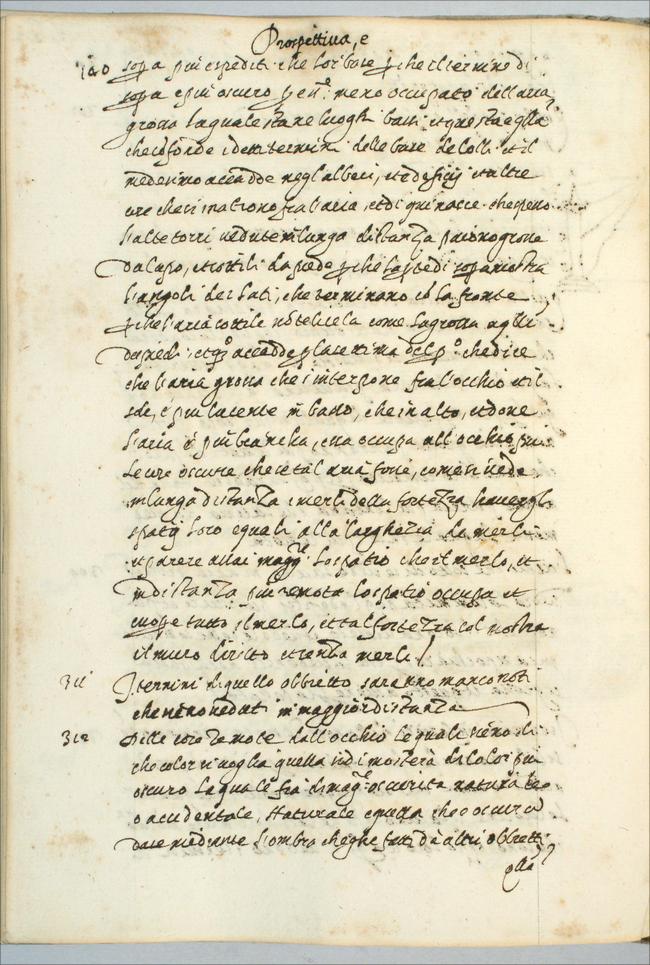 Prospettiva, e
140 sopa piu espediti che lor base pche il termine di
sopa e piu oscuro p en meno occupato dell aria
grossa la quale sta ne luoghi bassi et questa e qlla
che cōfonde i detti termini delle base de colli et il
medesimo accadde negl alberi, et edeficij et altre
cose che ci mostrono fra l'aria, et di qui nasce che spesso
l'alte torri vedute in lunga distanza paiono grosse
da capo, et sottili da piede pche la pte di sopa mostra
l'angoli de i lati, che terminano cō la fronte
pche l'aria sottile nō te li cela come la grossa a qlli
da piedi et qsto accadde p la settima del po che dice
che l'aria grossa che s'interpone fra l'occhio et il
sole, é piu lucente in basso, che in alto, et dove
l'aria è più bianca, essa occupa all occhio piu
le cose oscure che se tal aria fosse, come si vede
in lunga distanza i merli della fortezza haver gl
spatij loro equali alla larghezza de merli
et parere assai magg lo spatio che il merlo, et
in distanza piu remota lo spatio occupa et
cuopre tutto il merlo, et tal fortezza sol mostra
il muro diritto et senza merli /
311 I termini di quello obbietto saranno manco noti
che seranno veduti in maggior distanza
312 Delle cose remote dall'occhio le quali sieno di
che color si voglia quella si dimosterà di color piu
oscuro la quale fia di magge oscurità naturale
o accidentale, Naturale e quella che è oscura
date mediante l'ombra che gli è fatti da altri obbietti
qlla